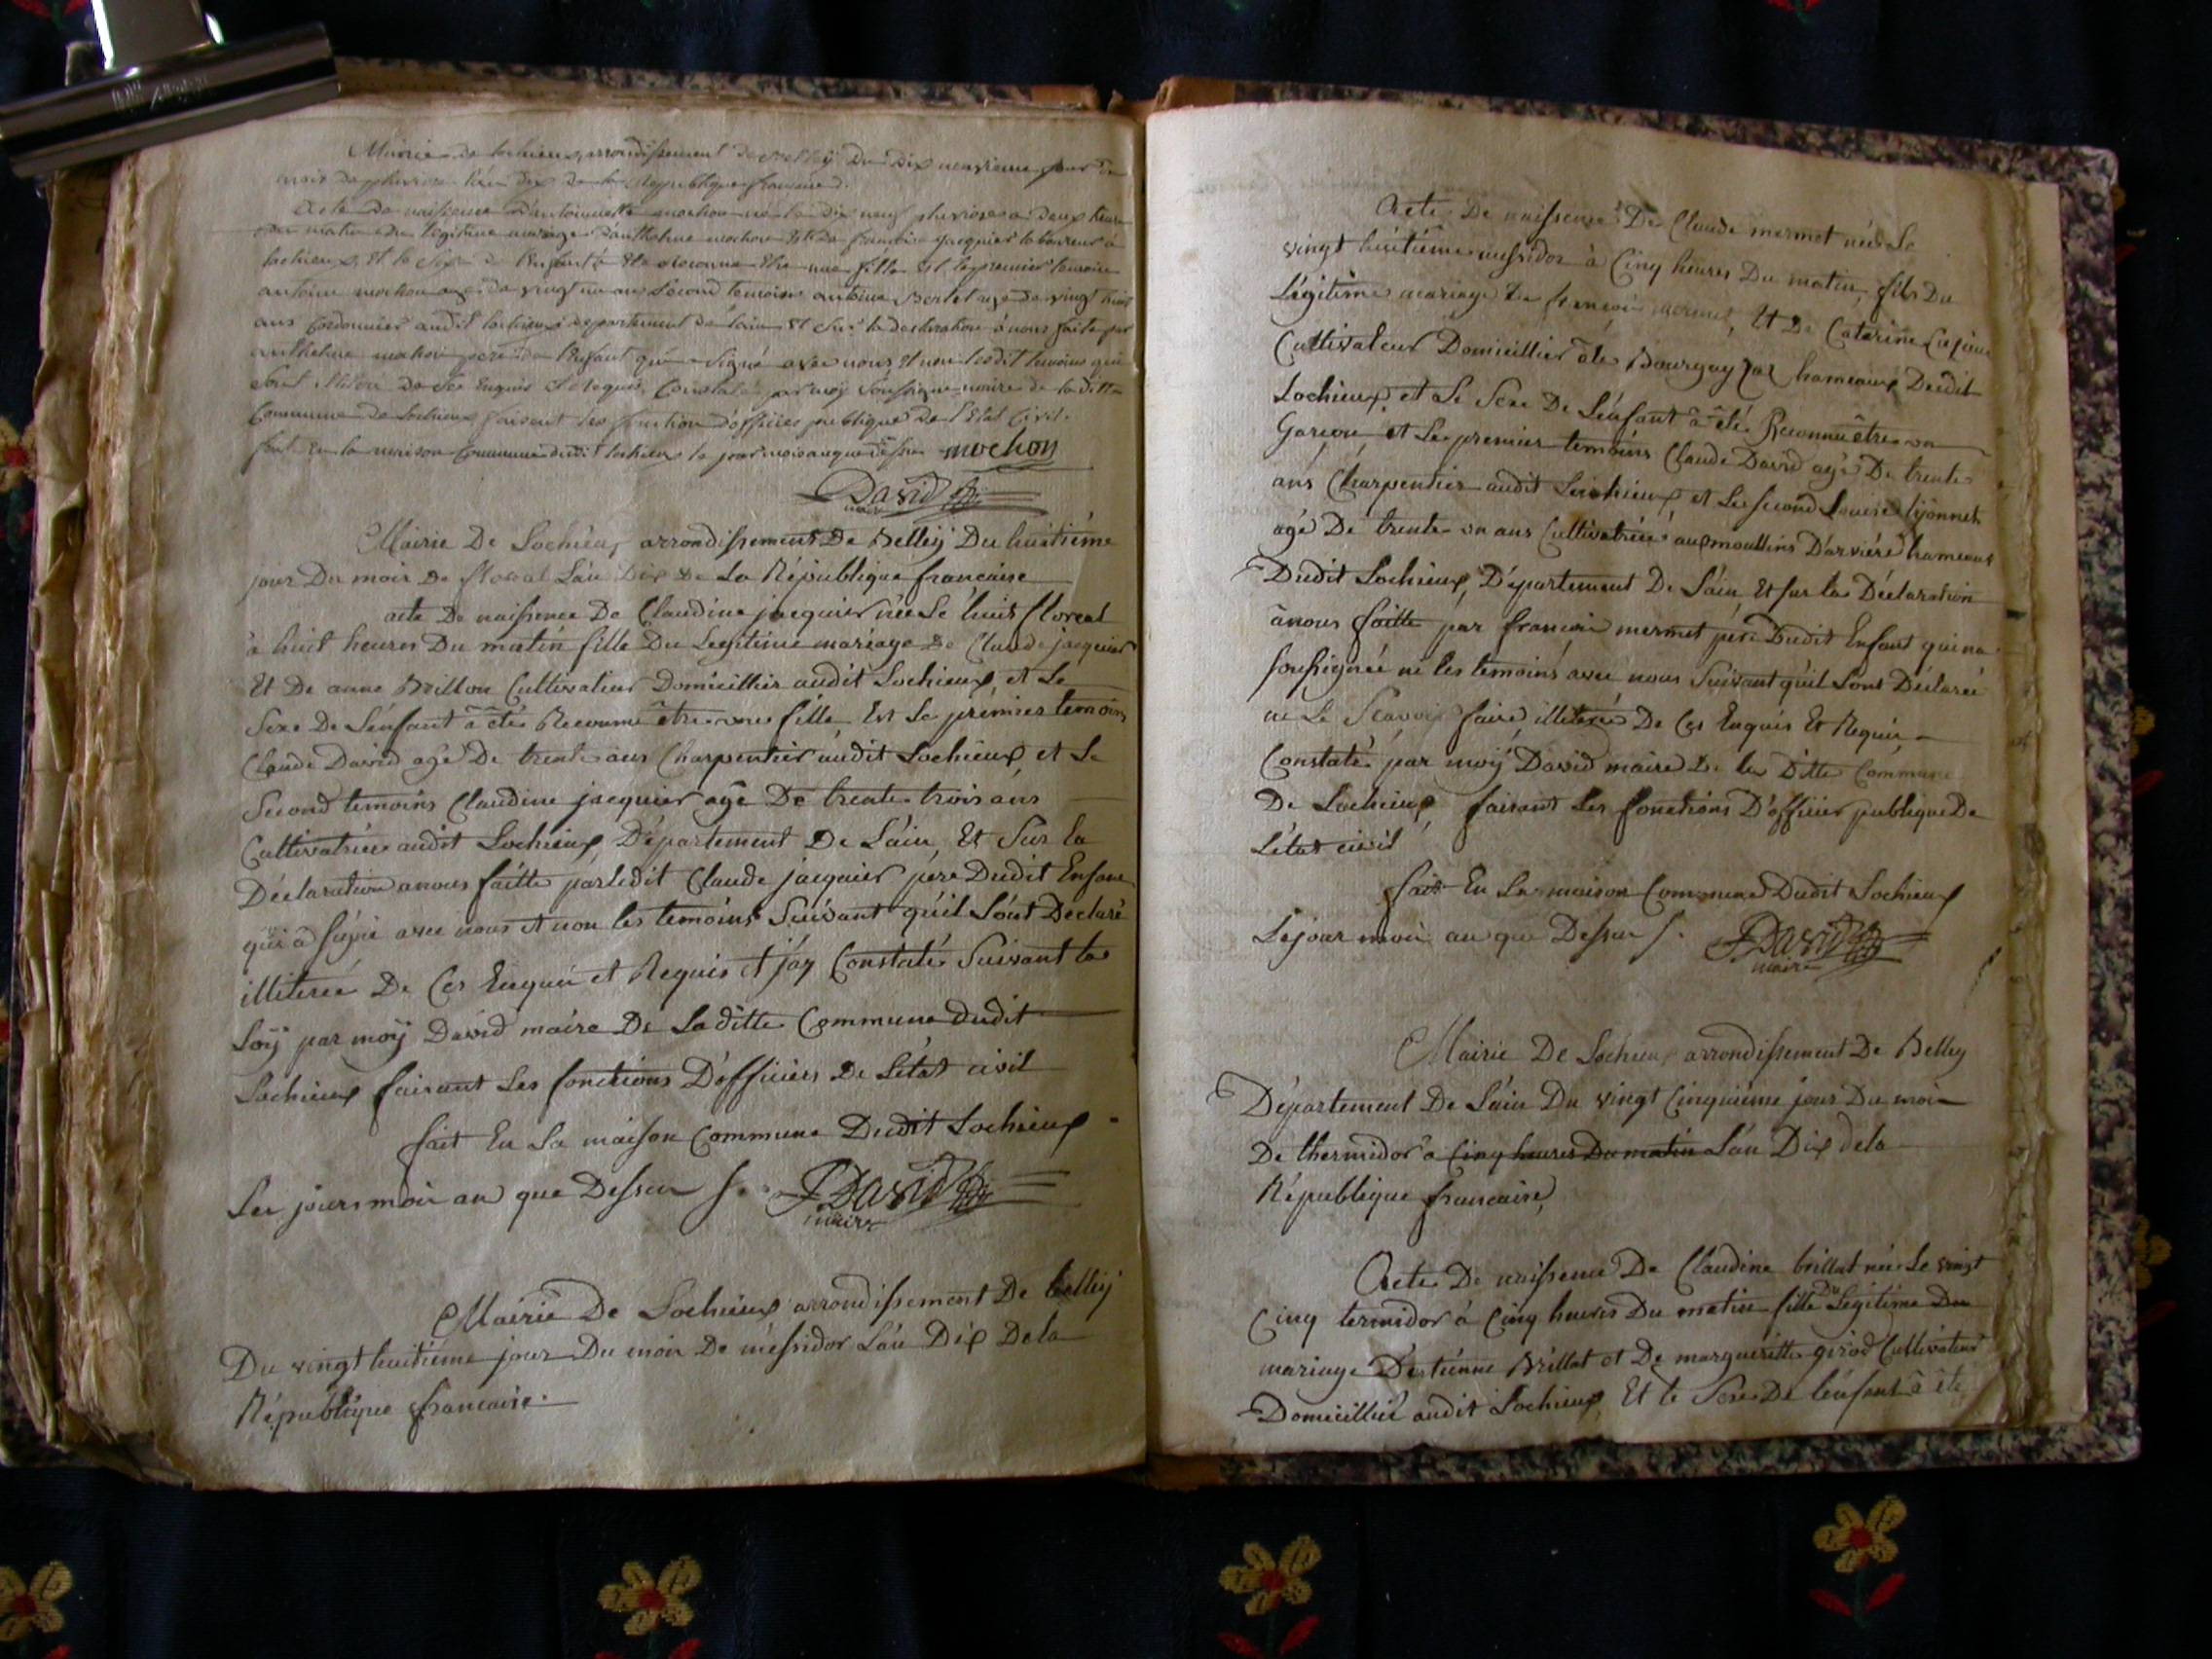 Mairie de lochieux arrondissement de Belleÿ Du Dix neuvieme jour du
mois de pluviose l'an dix de la Republique francaise.
Acte de naissance d'antoinette mochon née le dix neuf pluviose a deux heures
du matin du legitime mariage d'anthelme mochon et de francoise jacquier laboureur à
lochieux, et le sexe de l'enfant a été reconnu être une fille et le premier temoin
antoine mochon agé de vingt un an second temoin antoine Bertet agé de vingt huit
ans Cordonnier audit lochieux departement de lain et sur la declaration à nous faite par
anthelme mochon pere de l'enfant qui a signé avec nous et non lesdit temoins qui
sont illiteré de ce enquis et requis, Constaté par moÿ soussigné maire de la ditte
Commune de lochieux faisant les fonction d'officier publique de l'Etat Civil.
fait en la maison Commune dudit lochieux le jour mois an que dessus mochon
David
maire
Mairie De Lochieux arrondissement De Belleÿ Du huitiéme
jour Du mois De floreal L'an Dix De La République francaise
acte De naissence De Claudine jacquier née Le huit floreal
à huit heures Du matin fille Du Legitime mariage De Claude jacquier
Et De anne Brillon Cultivateur Domicillier audit Lochieux, et Le
Sexe De L'enfant â été Reconnu être une fille Et Le premier temoins
Claude David agé De trente ans Charpentier audit Lochieux, et Le
Second temoins Claudine jacquier agé De trente trois ans
Cultivatrice audit Lochieux Département De L'ain, Et Sur la
Déclaration a nous faitte par ledit Claude jacquier pere Dudit Enfant
qui a signé avec nous et non les temoins Suivant qu'il Sont Declaré
illiteree De Ces Enquis et Requis et j'ay Constaté Suivant la
Loÿ par moÿ David maire De Laditte Commune dudit
Lochieux faisant Les fonctions D'officiers De L'état civil
fait En La maison Commune Dudit Lochieux
Les jours mois an que Dessus /. David
maire
Mairie De Lochieux arrondissement De belleÿ
Du vingt huitieme jour Du mois De messidor L'an Dix De la
République francaise.
Acte De naissence De Claude mermet née Le
vingt huitiéme messidor à Cinq heures Du matin, fils Du
Légitime mariage De francois mermet, Et De Catarine
Cultivateur Domicillier hameaux Dudit
Lochieux, et Le Sexe De L'enfant à été Reconnu être un
Garcon, et Le premier temoins Claude David agé De trente
ans Charpentier audit Lochieux, et Le second Louise lÿonnet
agé De trente un ans Cultivatrice aux moullins D'arviere hameaux
Dudit Lochieux, Département De L'ain, Et sur la Déclaration
à nous faitte par francois mermet pere Dudit Enfant qui na
soussignée ni les temoins avec nous Suivant qu'il Sont Déclaré
ne Le Scavoir faire, illiteré De Ces Enquis Et Requis
Constaté par moÿ David maire De la Ditte Commune
De Lochieux, faisant Les fonctions D'officier publique De
L'état civil
fait En La maison Commune Dudit Lochieux
Le jour mois an que Dessus /. David
maire
Mairie De Lochieux arrondissement De Belley
Département De L'ain Du vingt Cinquieme jour Du mois
De thermidor a Cinq heures Du matin L'an Dix de la
République francaise,
Acte De naissence De Claudine brillat née Le vingt
Cinq termidor à Cinq heures Du matin fille Du Légitime Du
mariage D'estienne Brillat et De margueritte girod Cultivateur
Domicillié audit Lochieux, Et le Sexe De l'enfant à été